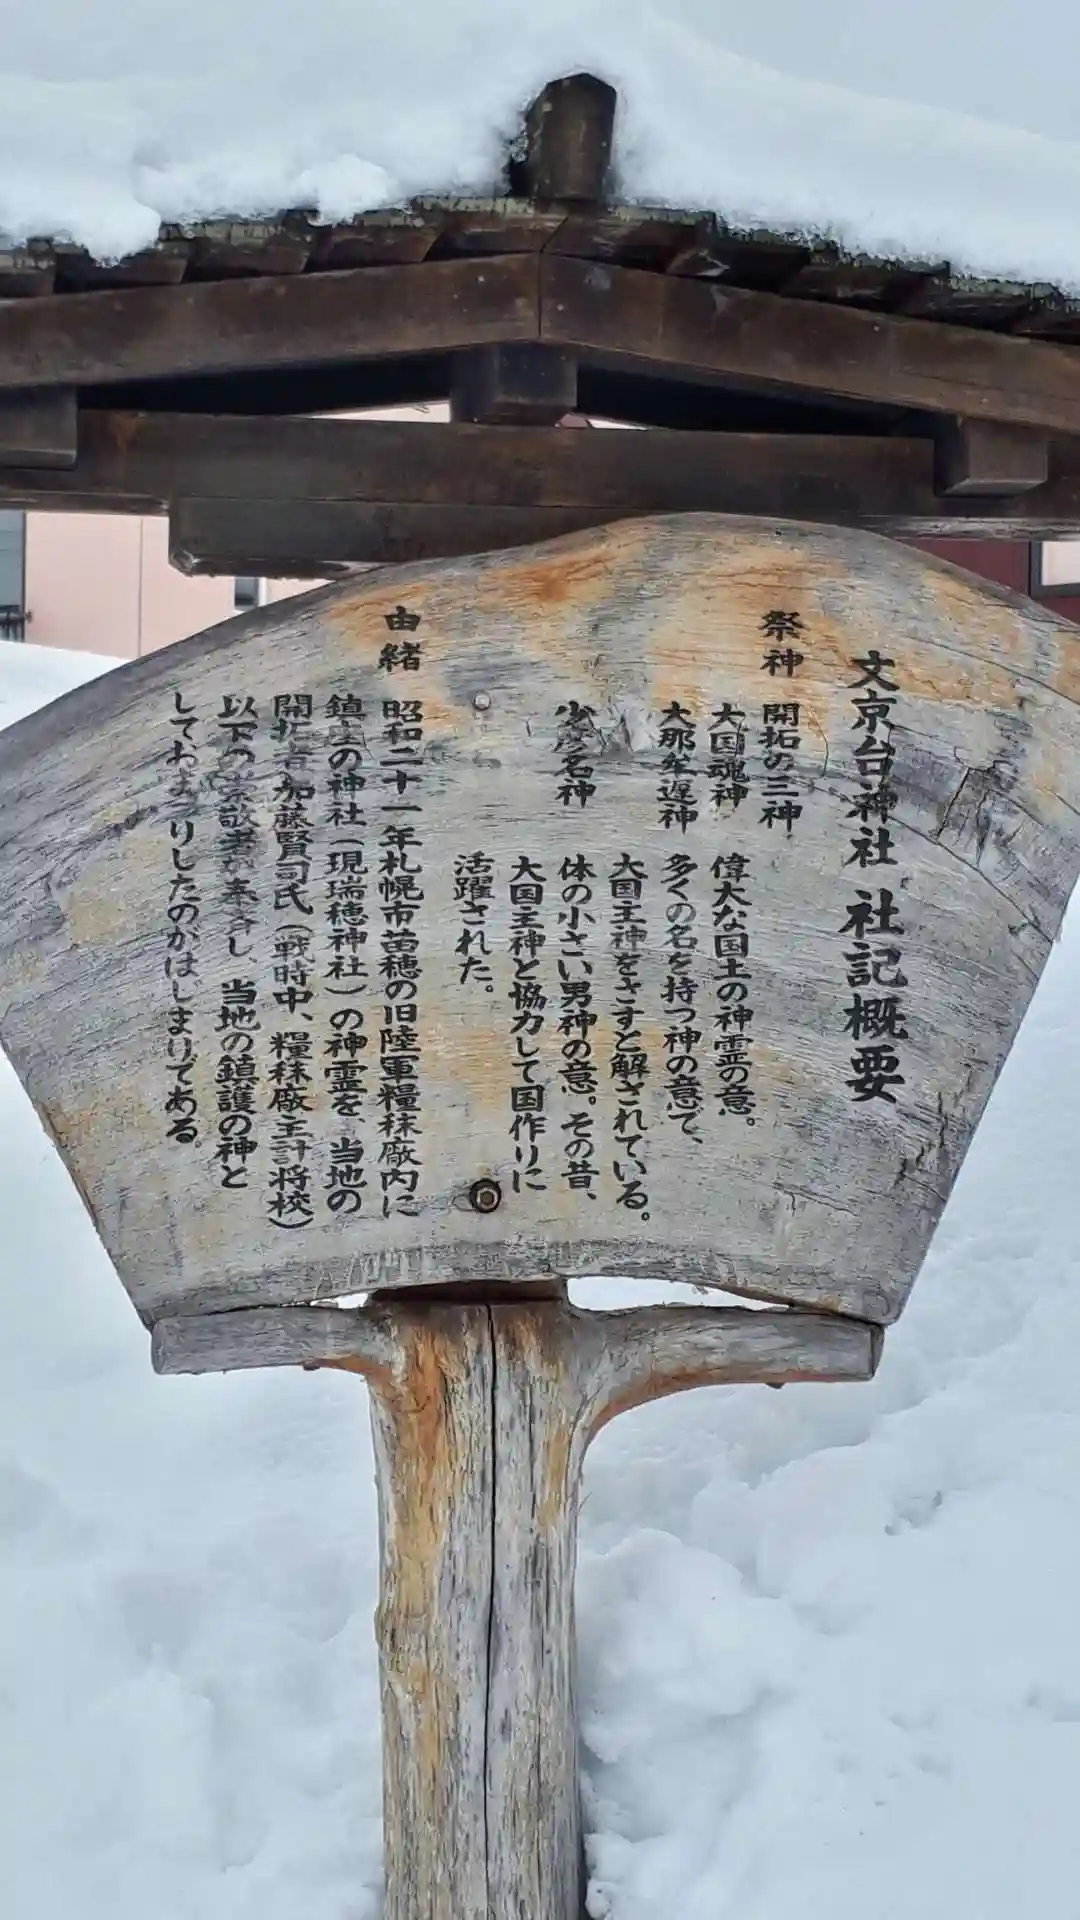 文京台神社 社記概要
祭神
開拓の三神
大国魂神 偉大な国土の神霊の意。
大那牟遅神 多くの名を持つ神の意で、
大国主神をさすと解されている。
少彦名神 体の小さい男神の意。その昔、
大国主神と協力して国作りに
活躍された。
由緒
昭和二十一年札幌市苗穂の旧陸軍糧秣廠内に
鎮座の神社(現瑞穂神社)の神霊を、当地の
開拓者加藤賢司氏(戦時中、糧秣廠主計将校)
以下の崇敬者が奉斉し、当地の鎮護の神と
しておまつりしたのがはじまりである。